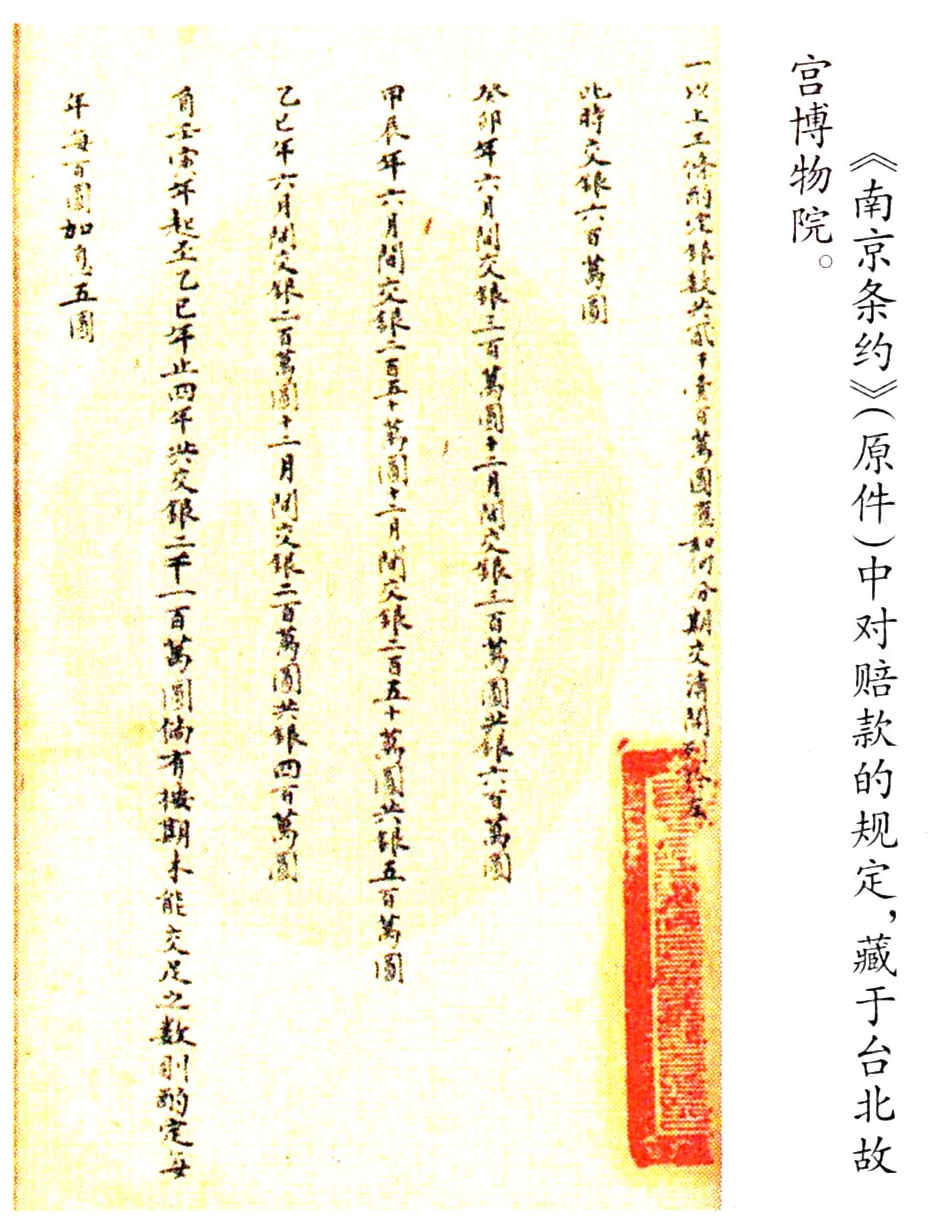 《南京条约》(原件)中对赔款的规定,藏于台北故
宫博物院。
一以上三條酌定銀數共貳千壹百萬圓應如何分期交清開列於左
此時交銀六百萬圓
癸卯年六月間交銀三百萬圓十二月間交銀三百萬圓共銀六百萬圓
甲辰年六月間交銀二百五十萬圓十二月間交銀二百五十萬圓共銀五百萬圓
乙巳年六月間交銀二百萬圓十二月間交銀二百萬圓共銀四百萬圓
自壬寅年起至乙巳年止四年共交銀二千一百萬圓倘有按期未能交足之數則酌定每
年每百圓加息五圓